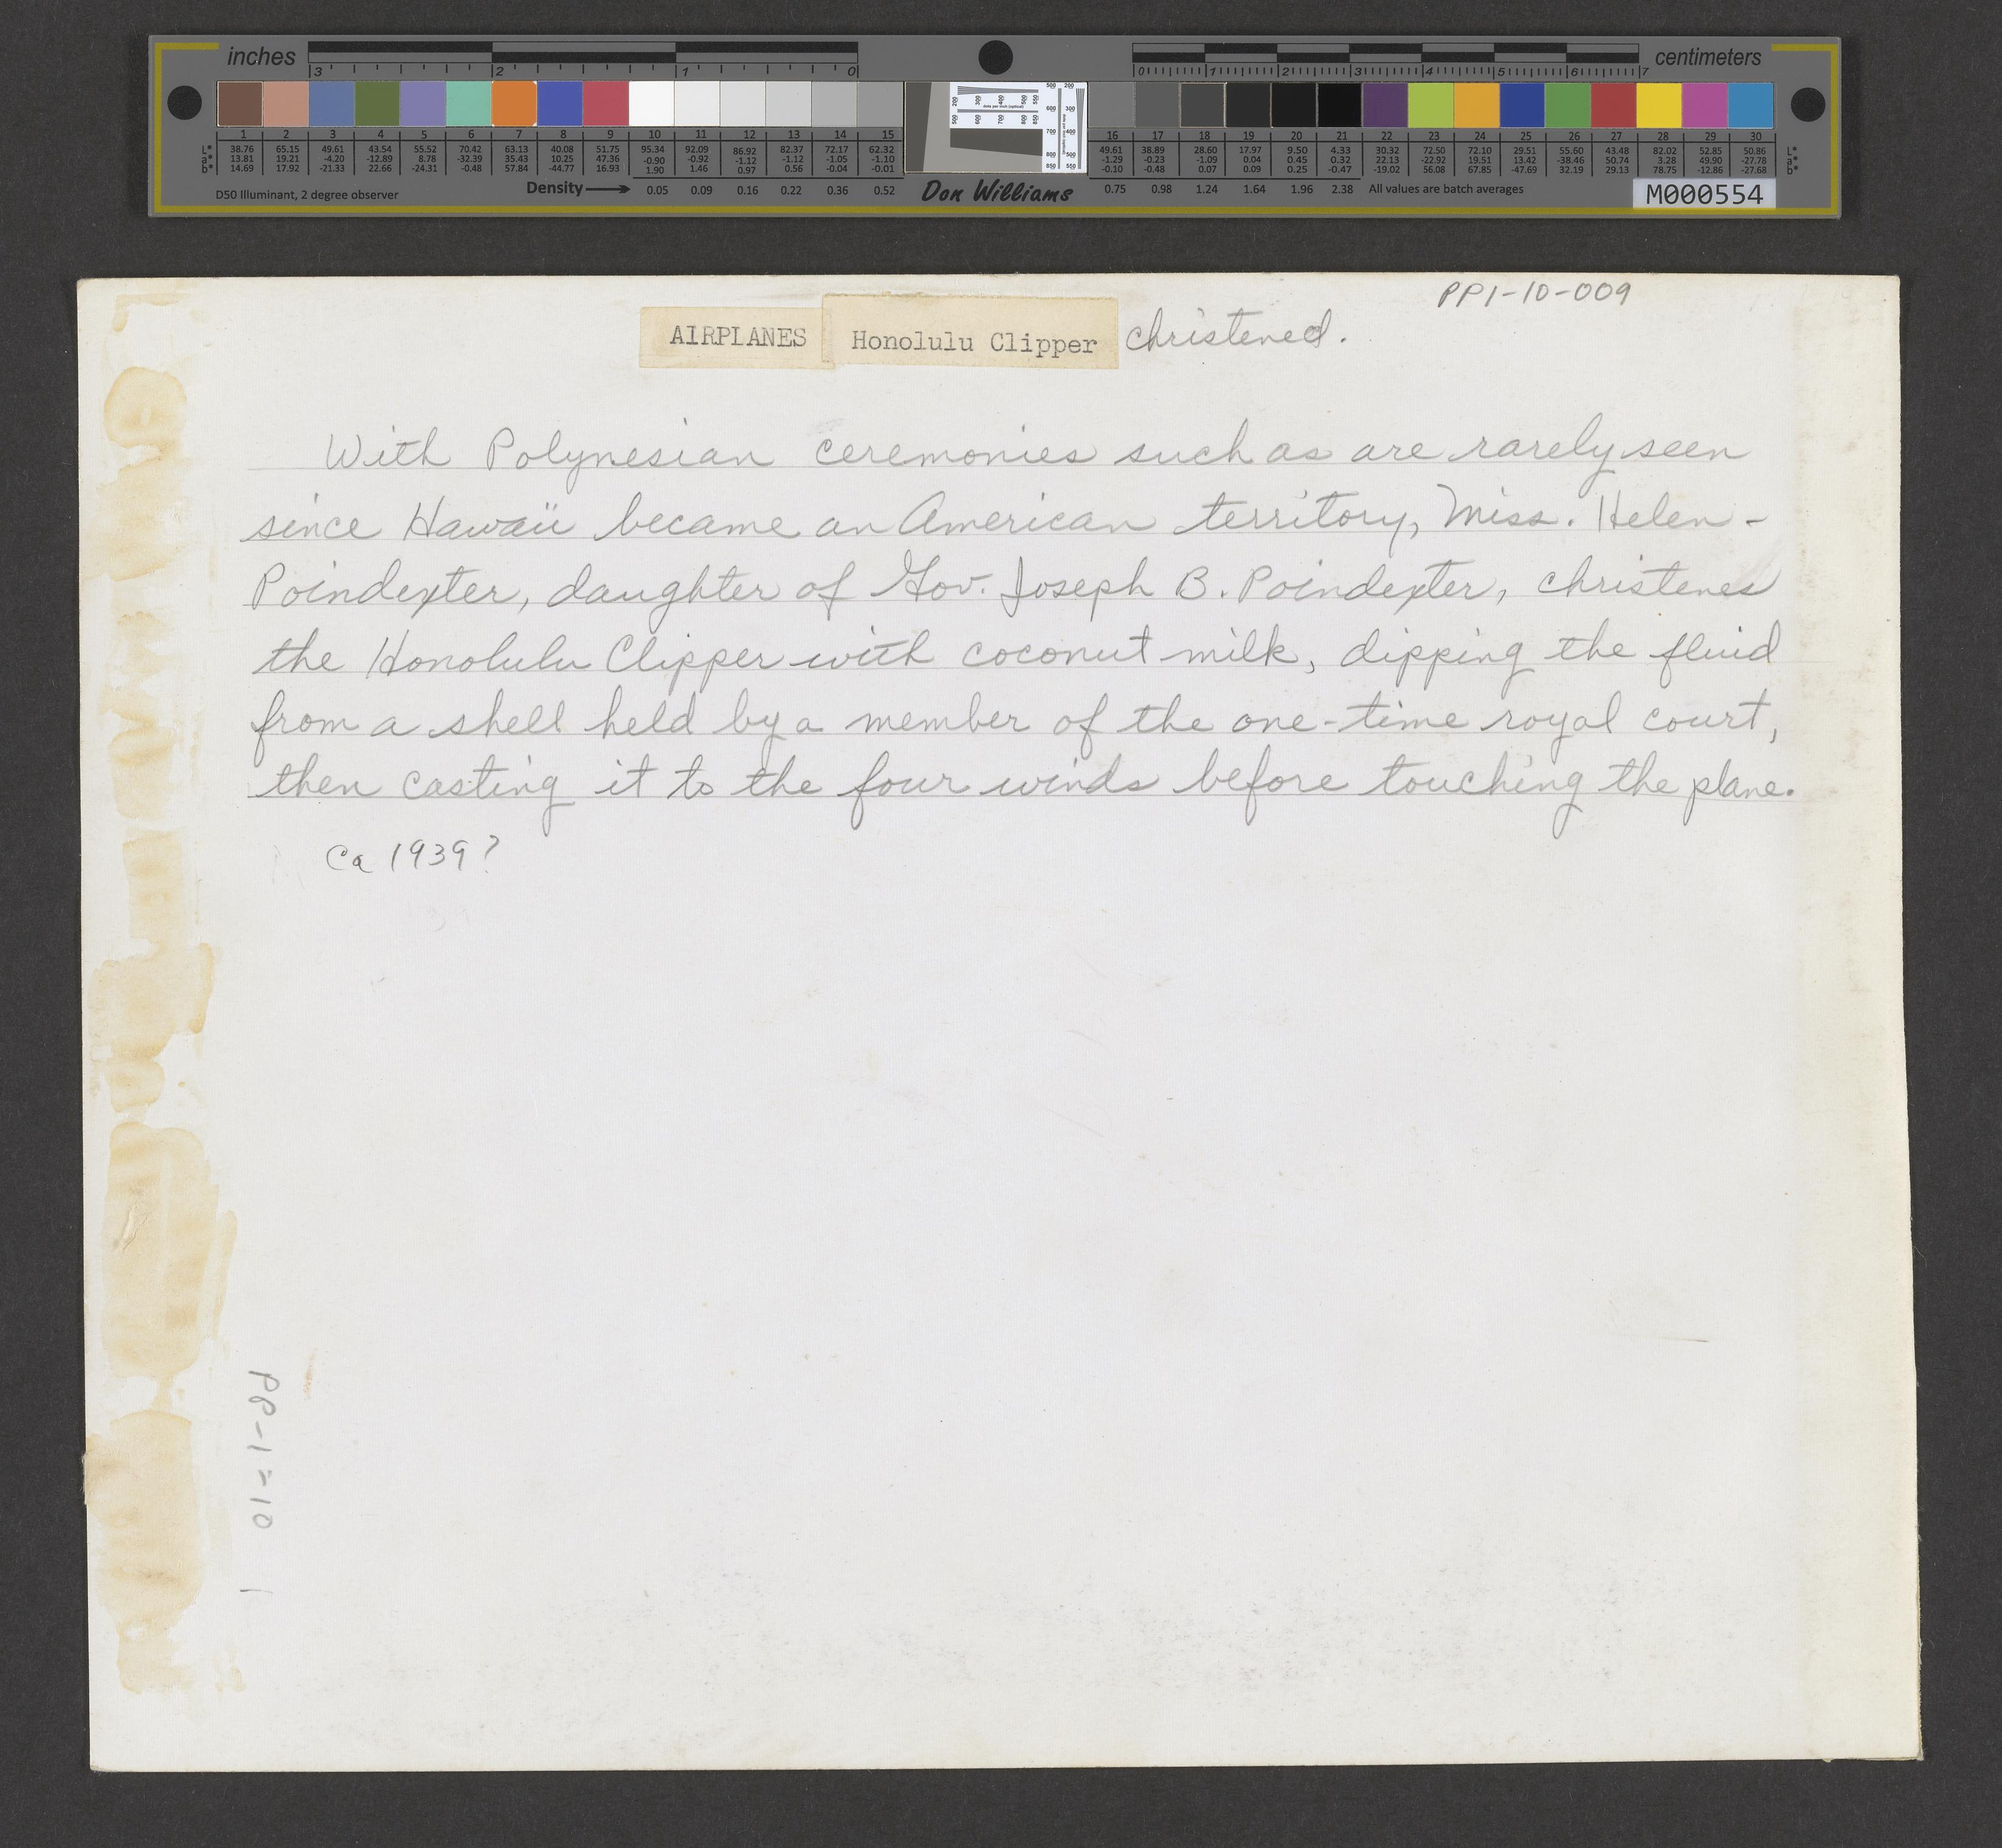 inches centimeters
3 2 1 0 0 1 2 3 4 5 6 7
1 2 3 4 5 6 7 8 9 10 11 12 13 14 15 16 17 18 19 20 21 22 23 24 25 26 27 28 29 30
L* 38.76 65.15 49.61 43.54 55.52 70.42 63.13 40.08 51.75 95.34 92.09 86.92 82.37 72.17 62.32 49.61 38.89 28.60 17.97 9.50 4.33 30.32 72.50 72.10 29.51 55.60 43.48 82.02 52.85 50.86 L*
a* 13.81 19.21 -4.20 -12.89 8.78 -32.39 35.43 10.25 47.36 -0.90 -0.92 -1.12 -1.12 -1.05 -1.10 -1.29 -0.23 -1.09 0.04 0.45 0.32 22.13 -22.92 19.51 13.42 -38.46 50.74 3.28 49.90 -27.78 a*
b* 14.69 17.92 -21.33 22.66 -24.31 -0.48 57.84 -44.77 16.93 1.90 1.46 0.97 0.56 -0.04 -0.01 -0.10 -0.48 0.07 0.09 0.25 -0.47 -19.02 56.08 67.85 -47.69 32.19 29.13 78.75 -12.86 -27.68 b*
D50 Illuminant, 2 degree observer Density 0.05 0.09 0.16 0.22 0.36 0.52 Don Williams 0.75 0.98 1.24 1.64 1.96 2.38 All values are batch averages M000554
PP1-10-009
AIRPLANES Honolulu Clipper christened.
With Polynesian ceremonies such as are rarely seen
since Hawaii became an American territory, Miss. Helen -
Poindexter, daughter of Gov. Joseph B. Poindexter, christenes
the Honolulu Clipper with coconut milk, dipping the fluid
from a shell held by a member of the one-time royal court,
then casting it to the four winds before touching the plane.
Ca 1939?
PP-1=10